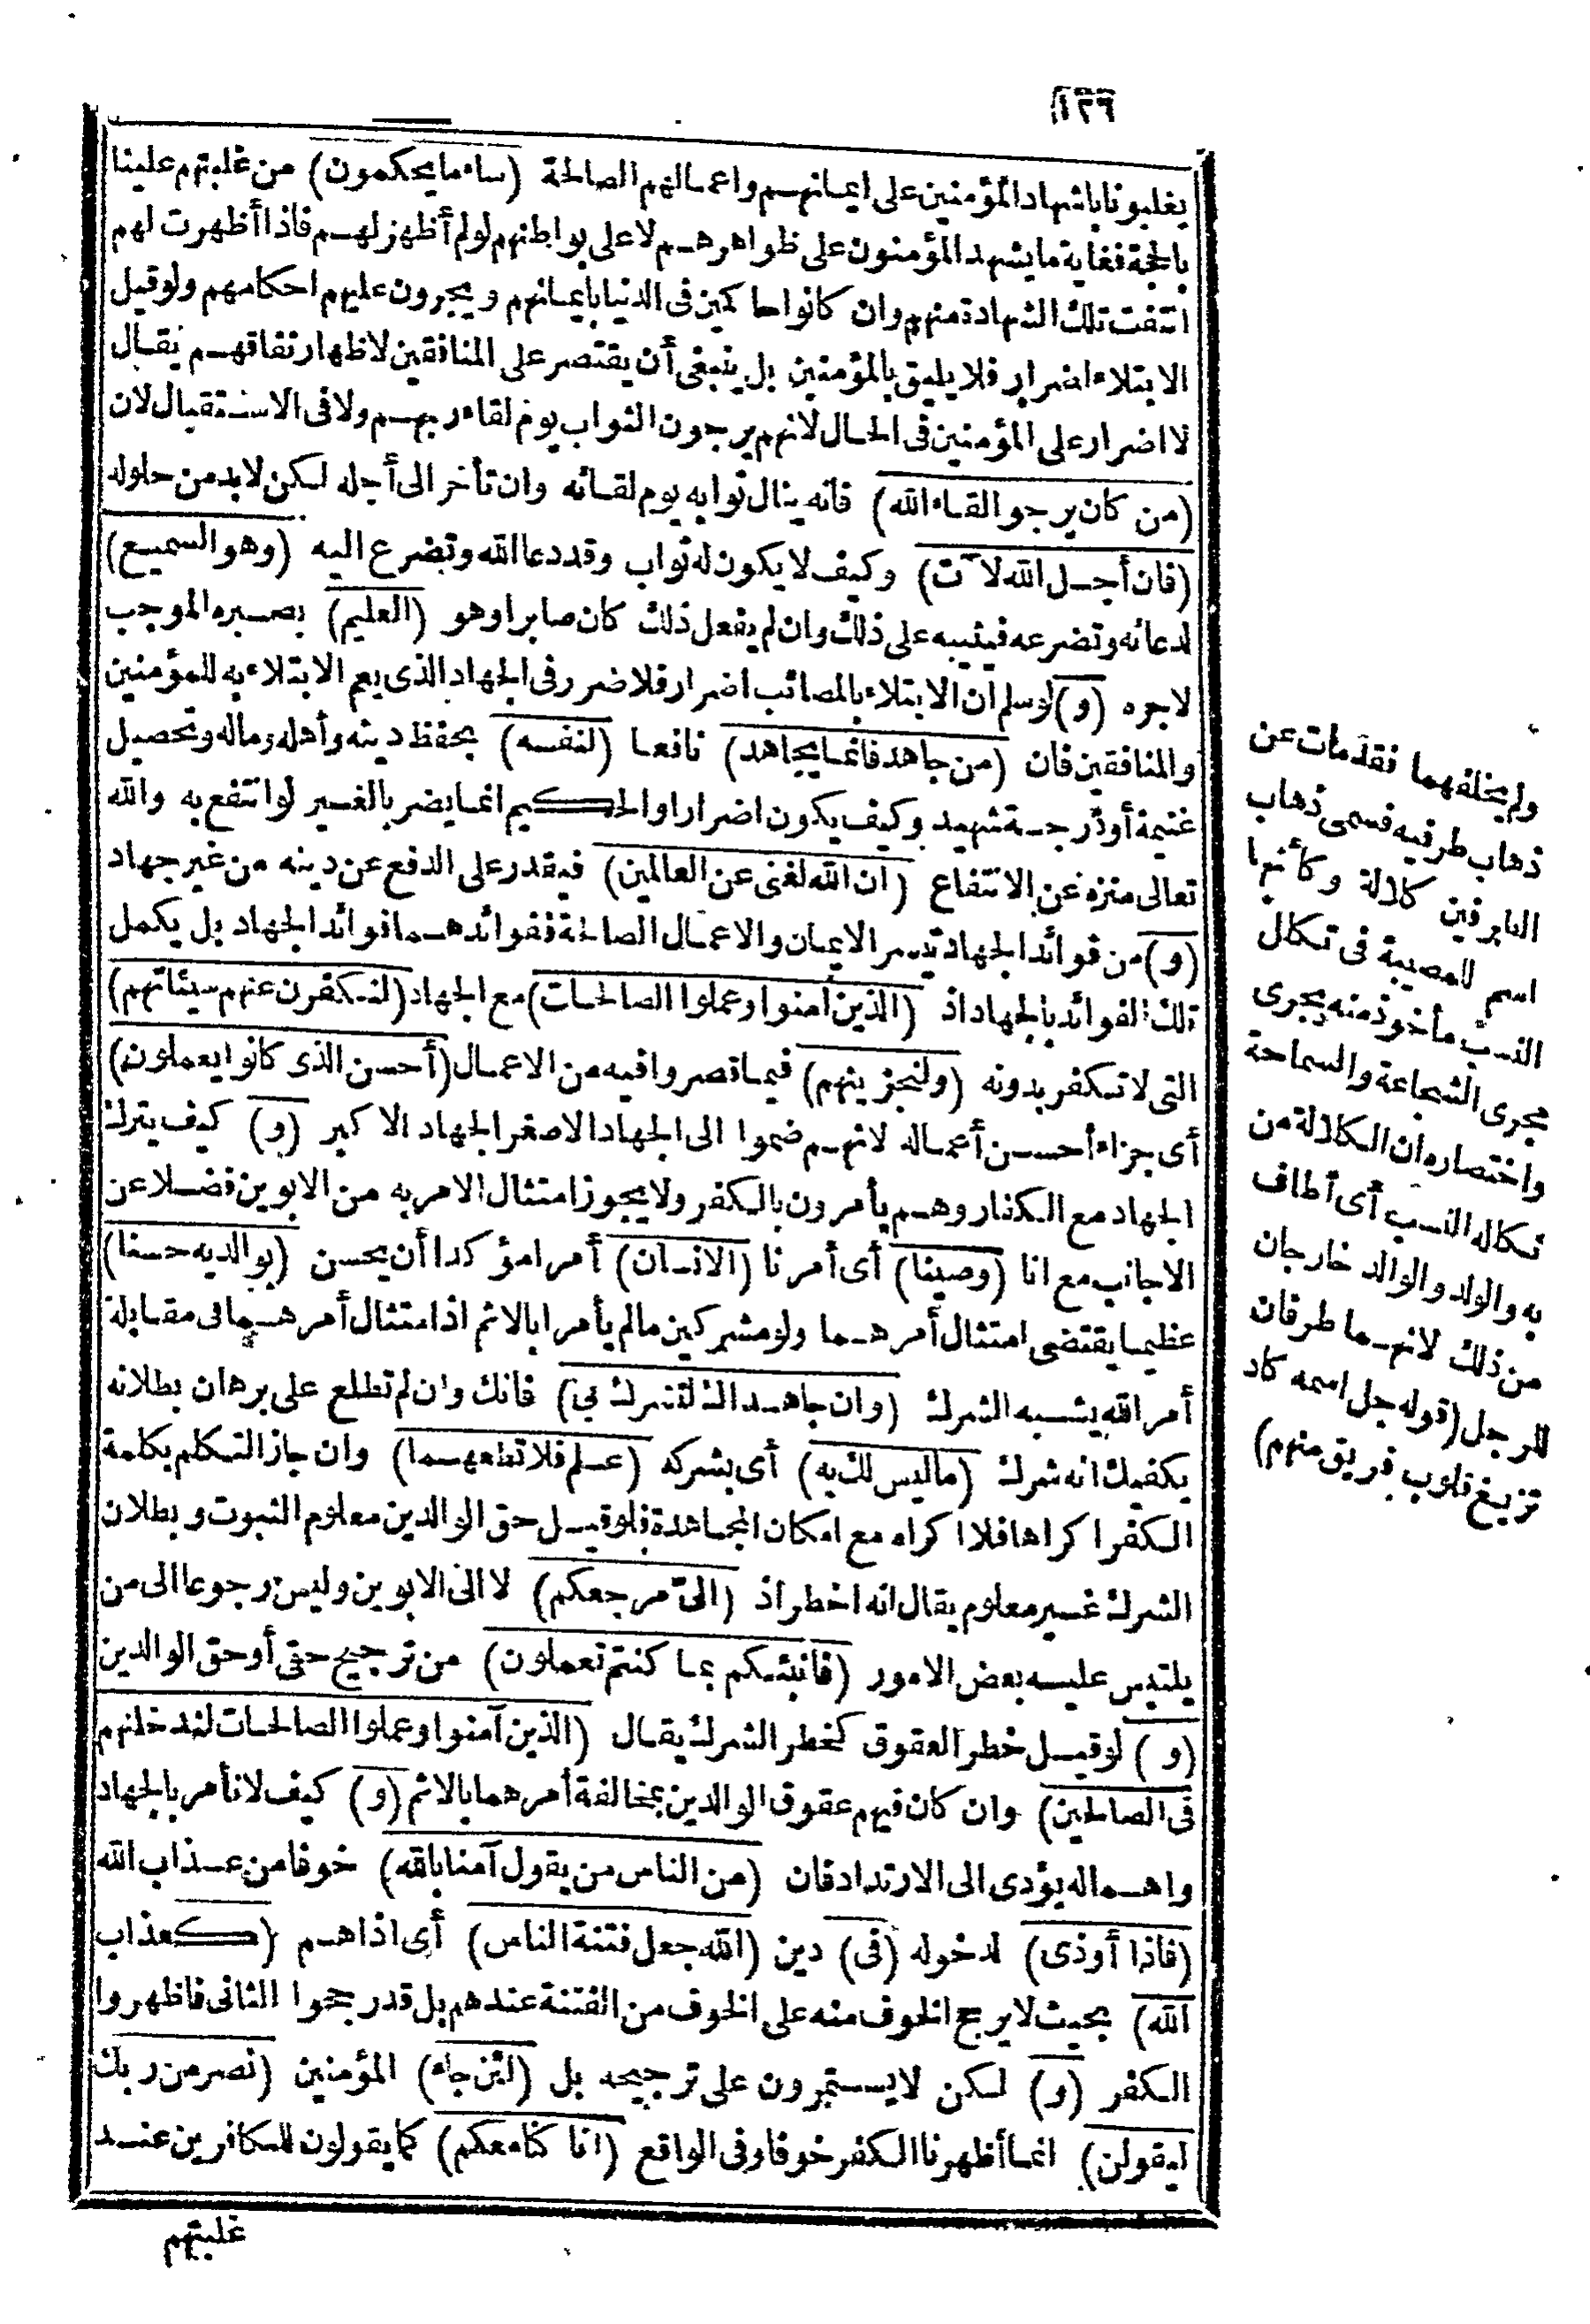 ١٢٦
يغلبونا باشهاد المؤمنين على ايمانهم واعمالهم الصالحة (ساء ما يحكمون) من غلبتهم علينا
بالحجة فغاية ما يشهد المؤمنون على ظواهرهم لا على بواطنهم لو لم أظهر لهم فاذا أظهرت لهم
انتفت تلك الشهادة منهم وان كانوا حاكمين فى الدنيا بايمانهم ويجرون عليهم احكامهم ولو قيل
الابتلاء اضرار فلا يليق بالمؤمنين بل ينبغى أن يقتصر على المنافقين لاظهار نفاقهم يقال
لا اضرار على المؤمنين فى الحال لانهم يرجون الثواب يوم لقاء ربهم ولا فى الاستقبال لان
(من كان يرجو القاء الله) فانه ينال ثوابه يوم لقائه وان تأخر الى أجله لكن لابد من حلوله
(فان أجل الله لآت) وكيف لا يكون له ثواب وقد دعا الله وتضرع اليه (وهو السميع)
لدعائه وتضرعه فيثيبه على ذلك وان لم يفعل ذلك كان صابرا وهو (العليم) بصبره الموجب
لاجره (و) لو سلم ان الابتلاء بالمصائب اضرار فلا ضرر فى الجهاد الذى يعم الابتلاء به للمؤمنين
والمنافقين فان (من جاهد فانما يجاهد) نافعا (لنفسه) بحفظ دينه وأهله وماله وتحصيل
غنيمة أو درجة شهيد وكيف يكون اضرارا والحكيم انما يضر بالغير لو انتفع به والله
تعالى منزه عن الانتفاع (ان الله لغنى عن العالمين) فيقدر على الدفع عن دينه من غير جهاد
(و) من فوائد الجهاد تيسر الايمان والاعمال الصالحة ففوائدهما فوائد الجهاد بل يكمل
تلك الفوائد بالجهاد اذ (الذين آمنوا وعملوا الصالحات) مع الجهاد (لنكفرن عنهم سيئاتهم)
التى لا تكفر بدونه (ولنجزينهم) فيما قصروا فيه من الاعمال (أحسن الذى كانوا يعملون)
أى جزاء أحسن أعماله لانهم ضموا الى الجهاد الاصغر الجهاد الاكبر (و) كيف يترك
الجهاد مع الكفار وهم يأمرون بالكفر ولا يجوز امتثال الامر به من الابوين فضلا عن
الاجانب مع انا (وصينا) أى أمرنا (الانسان) أمرا مؤكدا أن يحسن (بوالديه حسنا)
عظيما يقتضى امتثال أمرهما ولو مشركين ما لم يأمرا بالاثم اذ امتثال أمرهما فى مقابلة
أمر الله يشبه الشرك (وان جاهداك لتشرك بى) فانك وان لم تطلع على برهان بطلانه
يكفيك انه شرك (ما ليس لك به) أى بشركه (علم فلا تطعهما) وان جاز التكلم بكلمة
الكفر اكراها فلا اكراه مع امكان المجاهدة فلو قيل حق الوالدين معلوم الثبوت وبطلان
الشرك غير معلوم يقال انه اخطر اذ (الىّ مرجعكم) لا الى الابوين وليس رجوعا الى من
يلتبس عليه بعض الامور (فانبئكم بما كنتم تعملون) من ترجيح حقى أو حق الوالدين
(و) لو قيل خطر العقوق كخطر الشرك يقال (الذين آمنوا وعملوا الصالحات لندخلنهم
فى الصالحين) وان كان فيهم عقوق الوالدين بمخالفة أمرهما بالاثم (و) كيف لا نأمر بالجهاد
واهماله يؤدى الى الارتداد فان (من الناس من يقول آمنا بالله) خوفا من عذاب الله
(فاذا أوذى) لدخوله (فى) دين (الله جعل فتنة الناس) أى اذاهم (كعذاب
الله) بحيث لا يرجح الخوف منه على الخوف من الفتنة عندهم بل قد رجحوا الثانى فاظهروا
الكفر (و) لكن لا يستمرون على ترجيحه بل (لئن جاء) المؤمنين (نصر من ربك
ليقولن) انما أظهرنا الكفر خوفا وفى الواقع (انا كنا معكم) كما يقولون للكافرين عند
غلبتهم
ولم يخلفهما فقد مات عن
ذهاب طرفيه فسمى ذهاب
الطرفين كلالة وكأنها
اسم للمصيبة فى تكلل
النسب مأخوذ منه يجرى
مجرى الشجاعة والسماحة
واختصاره ان الكلالة من
تكلله النسب أى أطاف
به والولد والوالد خارجان
من ذلك لانهما طرفان
للرجل (قوله جل اسمه كاد
تزيغ قلوب فريق منهم)